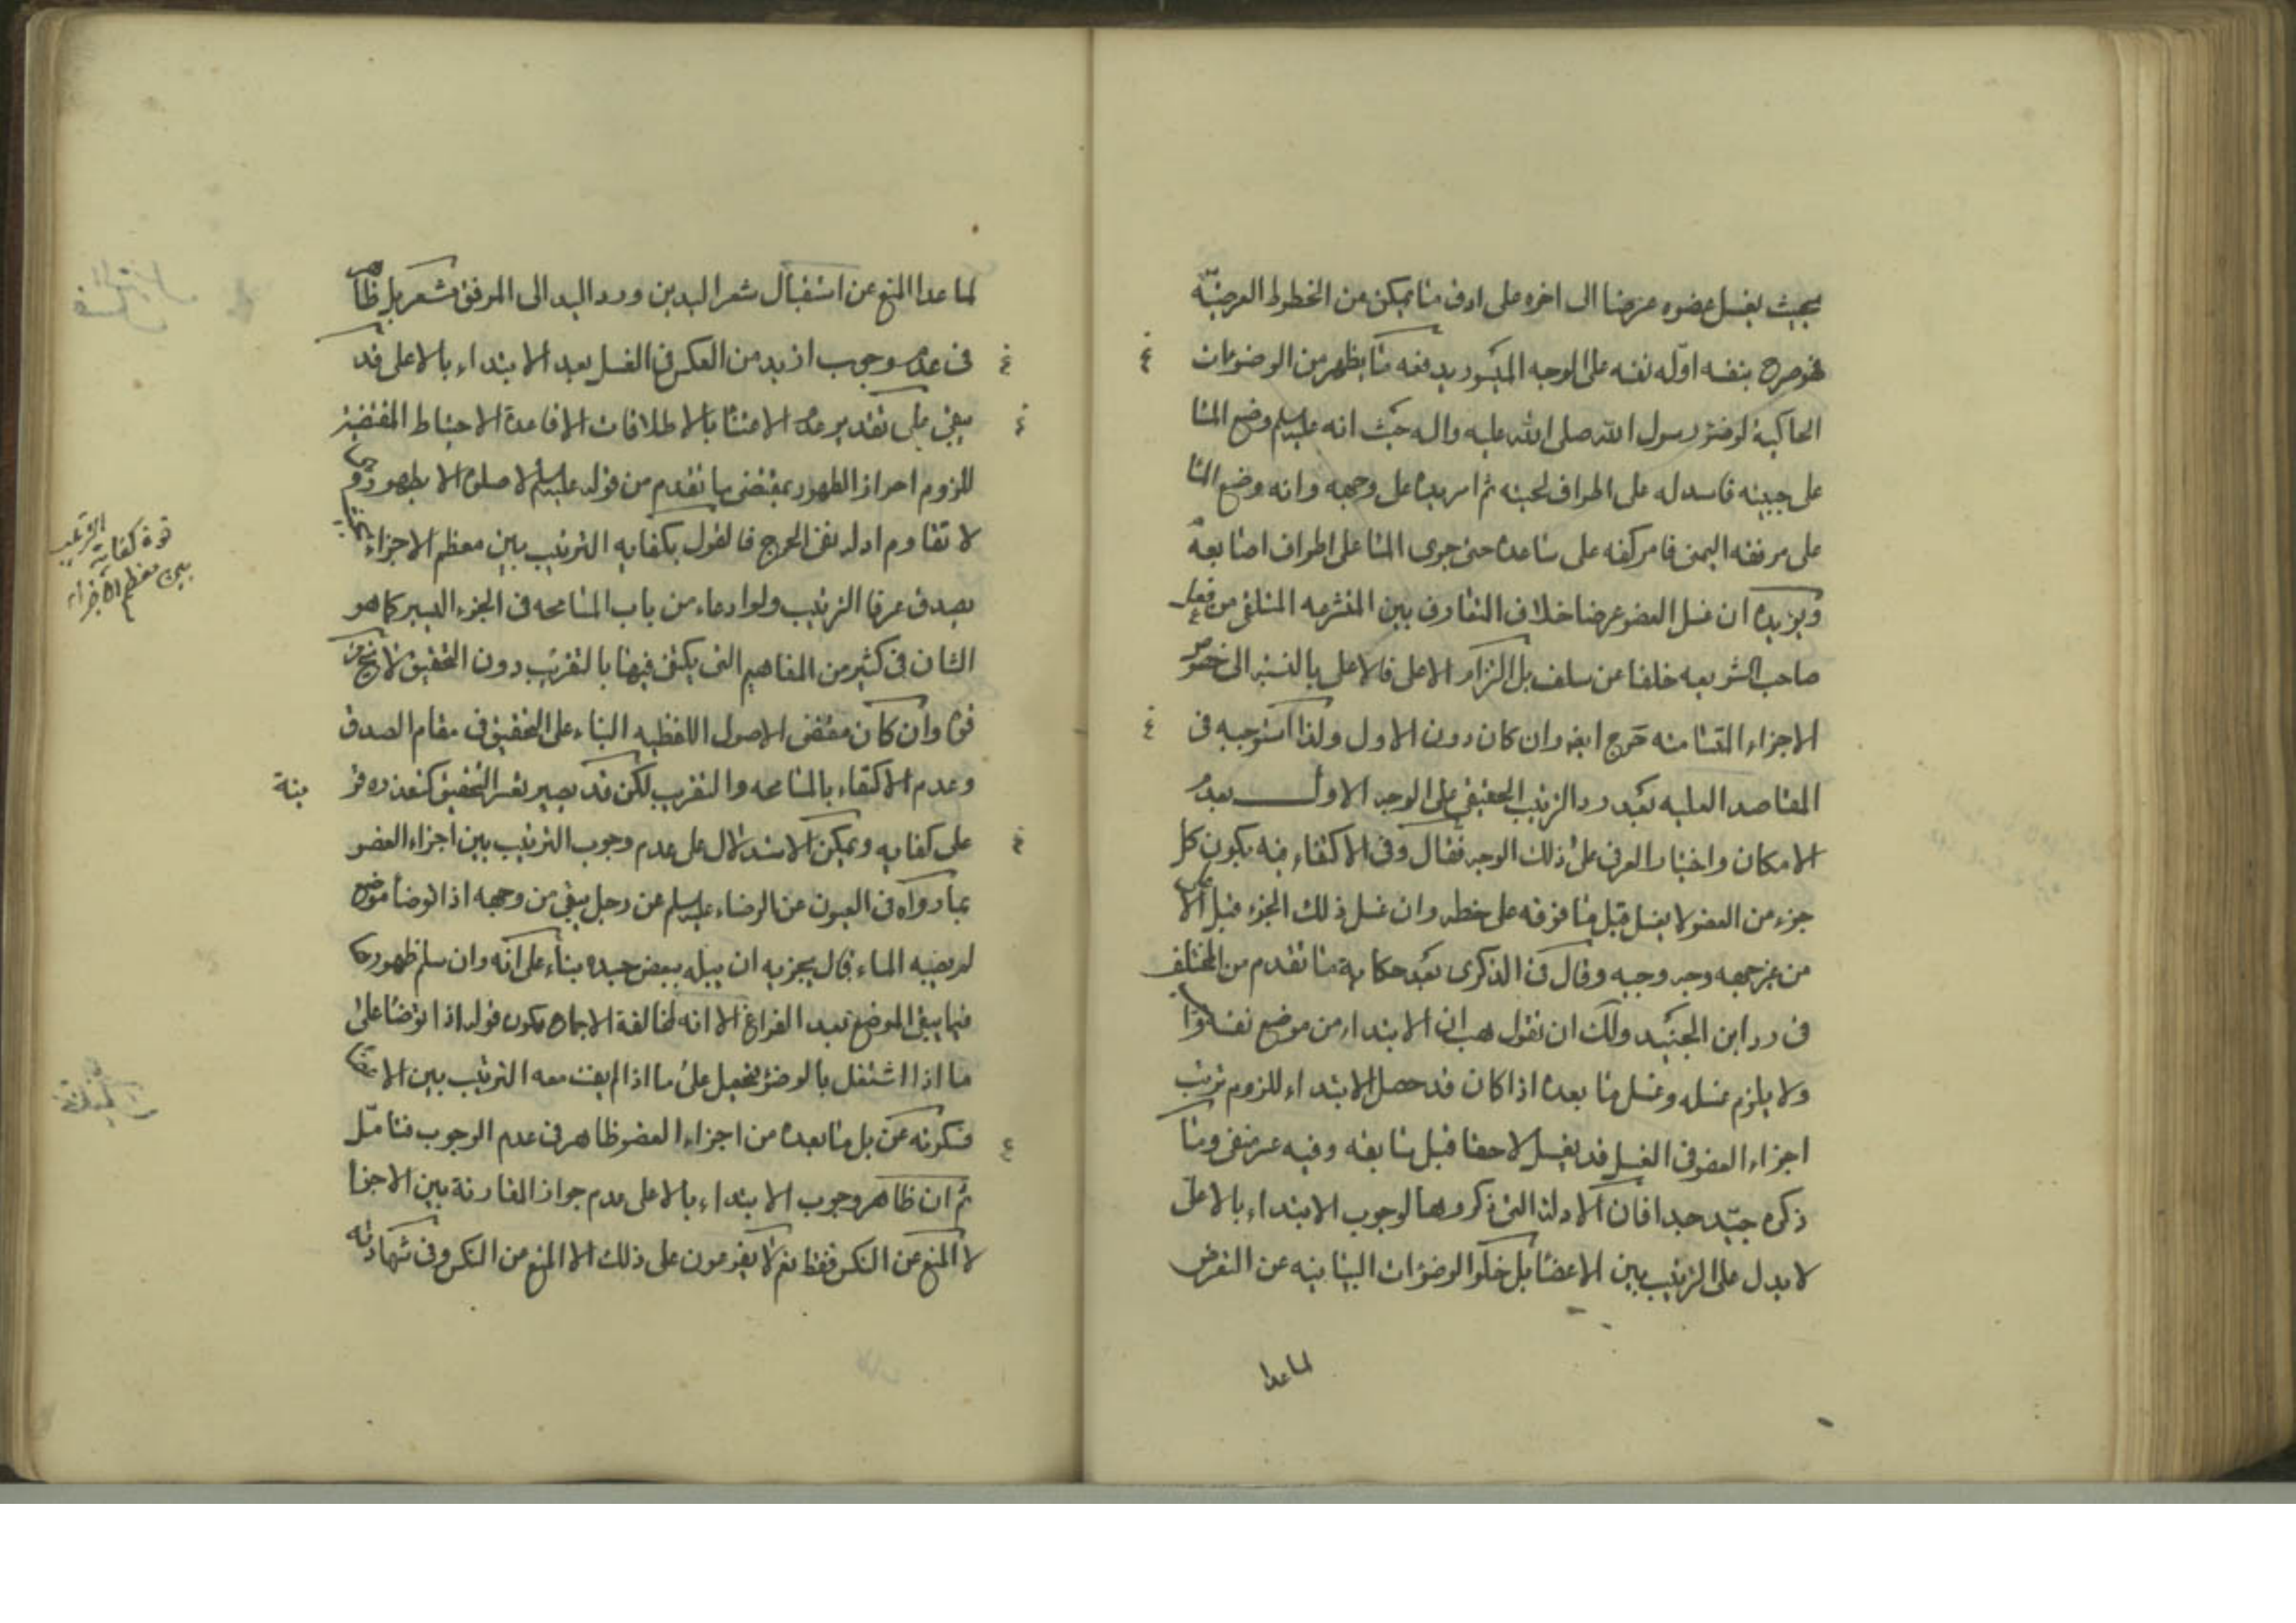 بحيث يغسل عضوه عرضا الى اخره على ادق ما يمكن من الخطوط العرضيّة
فهو حرج بنفسه ادلّة نفيه على الوجه المتسور يدفعه ما يظهر من الوضوءات
الحاكية لوضوء رسول الله صلى الله عليه واله حيث انه عليه السلم وضع الماء
على جبينه فاسدله على اطراف لحيته ثم امر يده على وجهه وانه وضع الماء
على مرفقه اليمنى فامر كفه على ساعده حتى جرى الماء على اطراف اصابعه
ويؤيده ان غسل العضو عرضا خلاف التعارف بين المتشرعه المتلقى من فعل
صاحب الشريعه خلفا عن سلف بل التزام الاعلى فالاعلى بالنسبه الى خصوص
الاجزاء المتسامته حرج ايضا وان كان دون الاول ولذا استوجبه فى
المقاصد العليه بعد رد الترتيب الحقيقى على الوجه الاول بعدم
الامكان واختيار العرفى على ذلك الوجه فقال وفى الاكتفاء فيه بكون كل
جزء من العضو لا يغسل قبل ما فوقه على خطه وان غسل ذلك الجزء قبل الاعلى
من غير جهه وجه وجيه وقال فى الذكرى بعد حكاية ما تقدم من المختلف
فى رد ابن الجنيد ولك ان تقول هب ان الابتداء من موضع
ولا يلزم غسله وغسل ما بعده اذا كان قد حصل الابتداء للزوم ترتب
اجزاء العضو فى الغسل فلا يغسل لاحقا قبل سابقه وفيه عسر منفى وما
ذكره جيّد جدا فان الادلة التى ذكروها لوجوب الابتداء بالاعلى
لا يدل على الترتيب بين الاعضاء بل خلوّ الوضوءات البيانيه عن التعرض
لما عدا
لما عدا المنع عن استقبال شعر اليدين ورد اليد الى المرفق مشعر بل ظاهر
فى عدم وجوب ازيد من العكس فى الغسل بعد الابتداء بالاعلى قد
يبقى على تقدير عدم الاعتناء بالاطلاقات الا قاعدة الاحتياط المقتضية
للزوم احراز الطهور بمقتضى ما تقدم من قوله عليه السلم لا صلوة الا بطهور وهى
لا تقاوم ادلة نفى الحرج فالقول بكفايه الترتيب بين معظم الاجزاء بحيث
يصدق عرفا الترتيب ولو ادعاء من باب المسامحه فى الجزء اليسير كما هو
الشان فى كثير من المفاهيم التى يكتفى فيها بالتقريب دون التحقيق لا يخ من
قوة وان كان مقتضى الاصول اللفظيه البناء على التحقيق فى مقام الصدق
وعدم الاكتفاء بالمسامحه والتقريب لكن قد يصير تعسر التحقيق كتعذره قرينة
على كفايه ويمكن الاستدلال على عدم وجوب الترتيب بين اجزاء العضو
بما رواه فى العيون عن الرضاء عليه السلم عن رجل يبقى من وجهه اذا توضأ موضع
لم يصبه الماء فقال يجزيه ان يبله ببعض جسده بناء على انّه وان سلم ظهورها
فيما يبقى الموضع بعد الفراغ الا انه لمخالفة الاجماع يكون قوله اذا توضأ على
ما اذا اشتغل بالوضوء فيحمل على ما اذا لم يفت معه الترتيب بين الاعضاء
فسكوته عن بل ما بعده من اجزاء العضو ظاهر فى عدم الوجوب فتامّل
ثم ان ظاهر وجوب الابتداء بالاعلى عدم جواز المقارنة بين الاجزاء
لا المنع عن النكس فقط نعم لا يفرعون على ذلك الا المنع من النكس وفى شهادته
قوة كفاية الترتيب
بين معظم الاجزاء